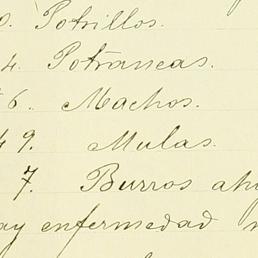 0. Potrillos.
4. Potrancas.
6. Machos.
49. Mulas.
7. Burros
ay enfermedad